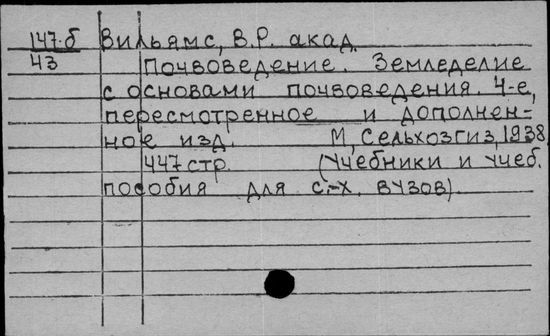 147-б Вильямс, В.Р. акад.
43 Почвоведение. Земледелие
с основами почвоведения. 4-е,
пересмотренное и дополнен-
ное изд. М, Сельхозгиз, 1938
447 стр. (Учебники и учеб.
пособия для с.-х. вузов).